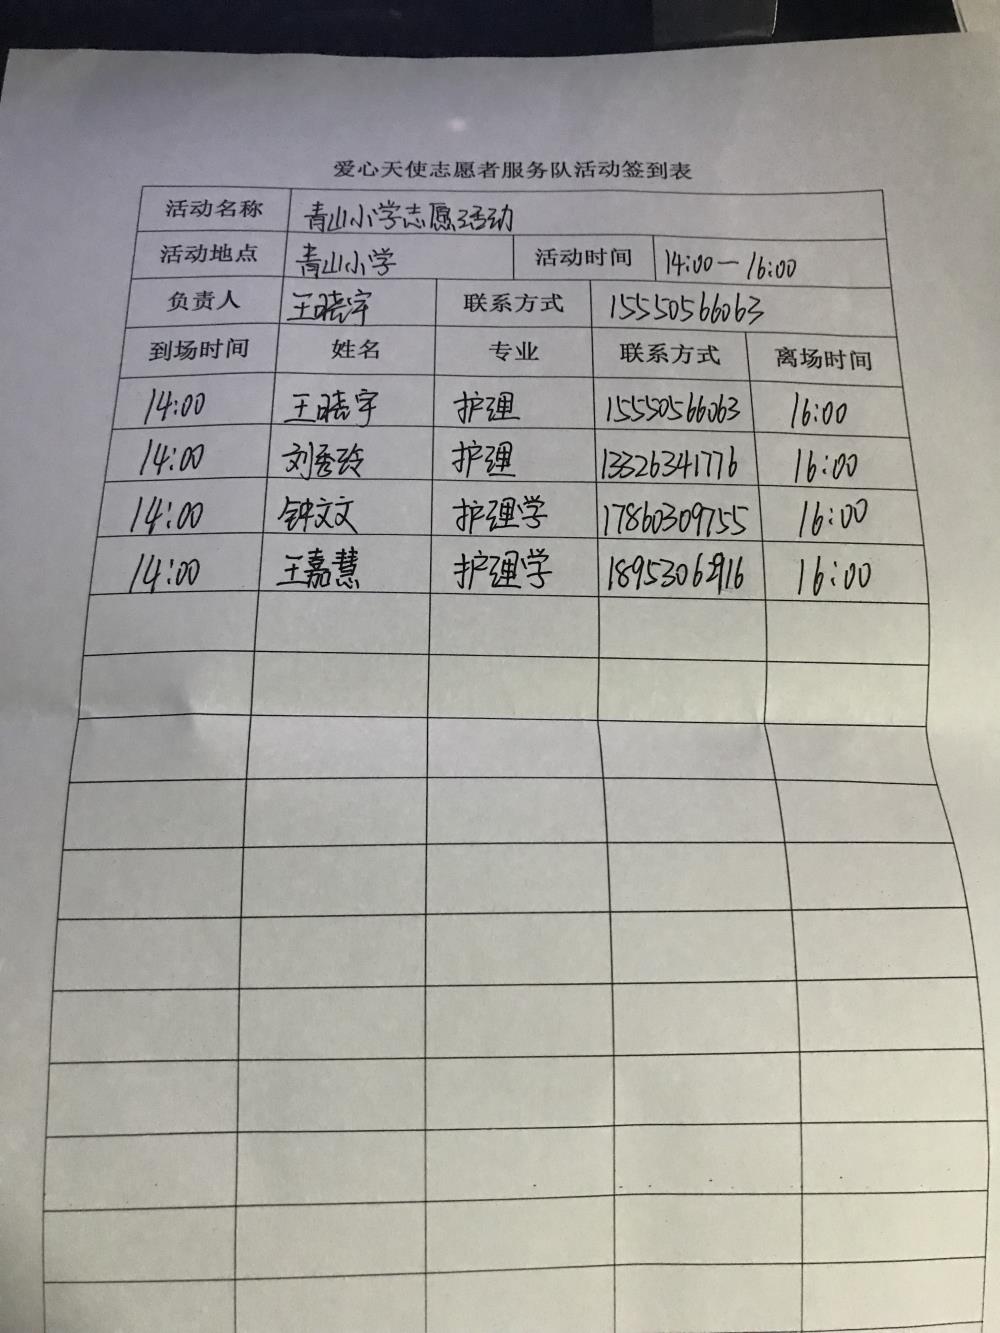 爱心天使志愿者服务队活动签到表
活动名称 青山小学志愿活动
活动地点 青山小学 活动时间 14:00—16:00
负责人 王晓宇 联系方式 15550566063
到场时间 姓名 专业 联系方式 离场时间
14:00 王晓宇 护理 15550566063 16:00
14:00 刘秀玲 护理 13326341776 16:00
14:00 钟文文 护理学 17860309755 16:00
14:00 王嘉慧 护理学 18953062916 16:00